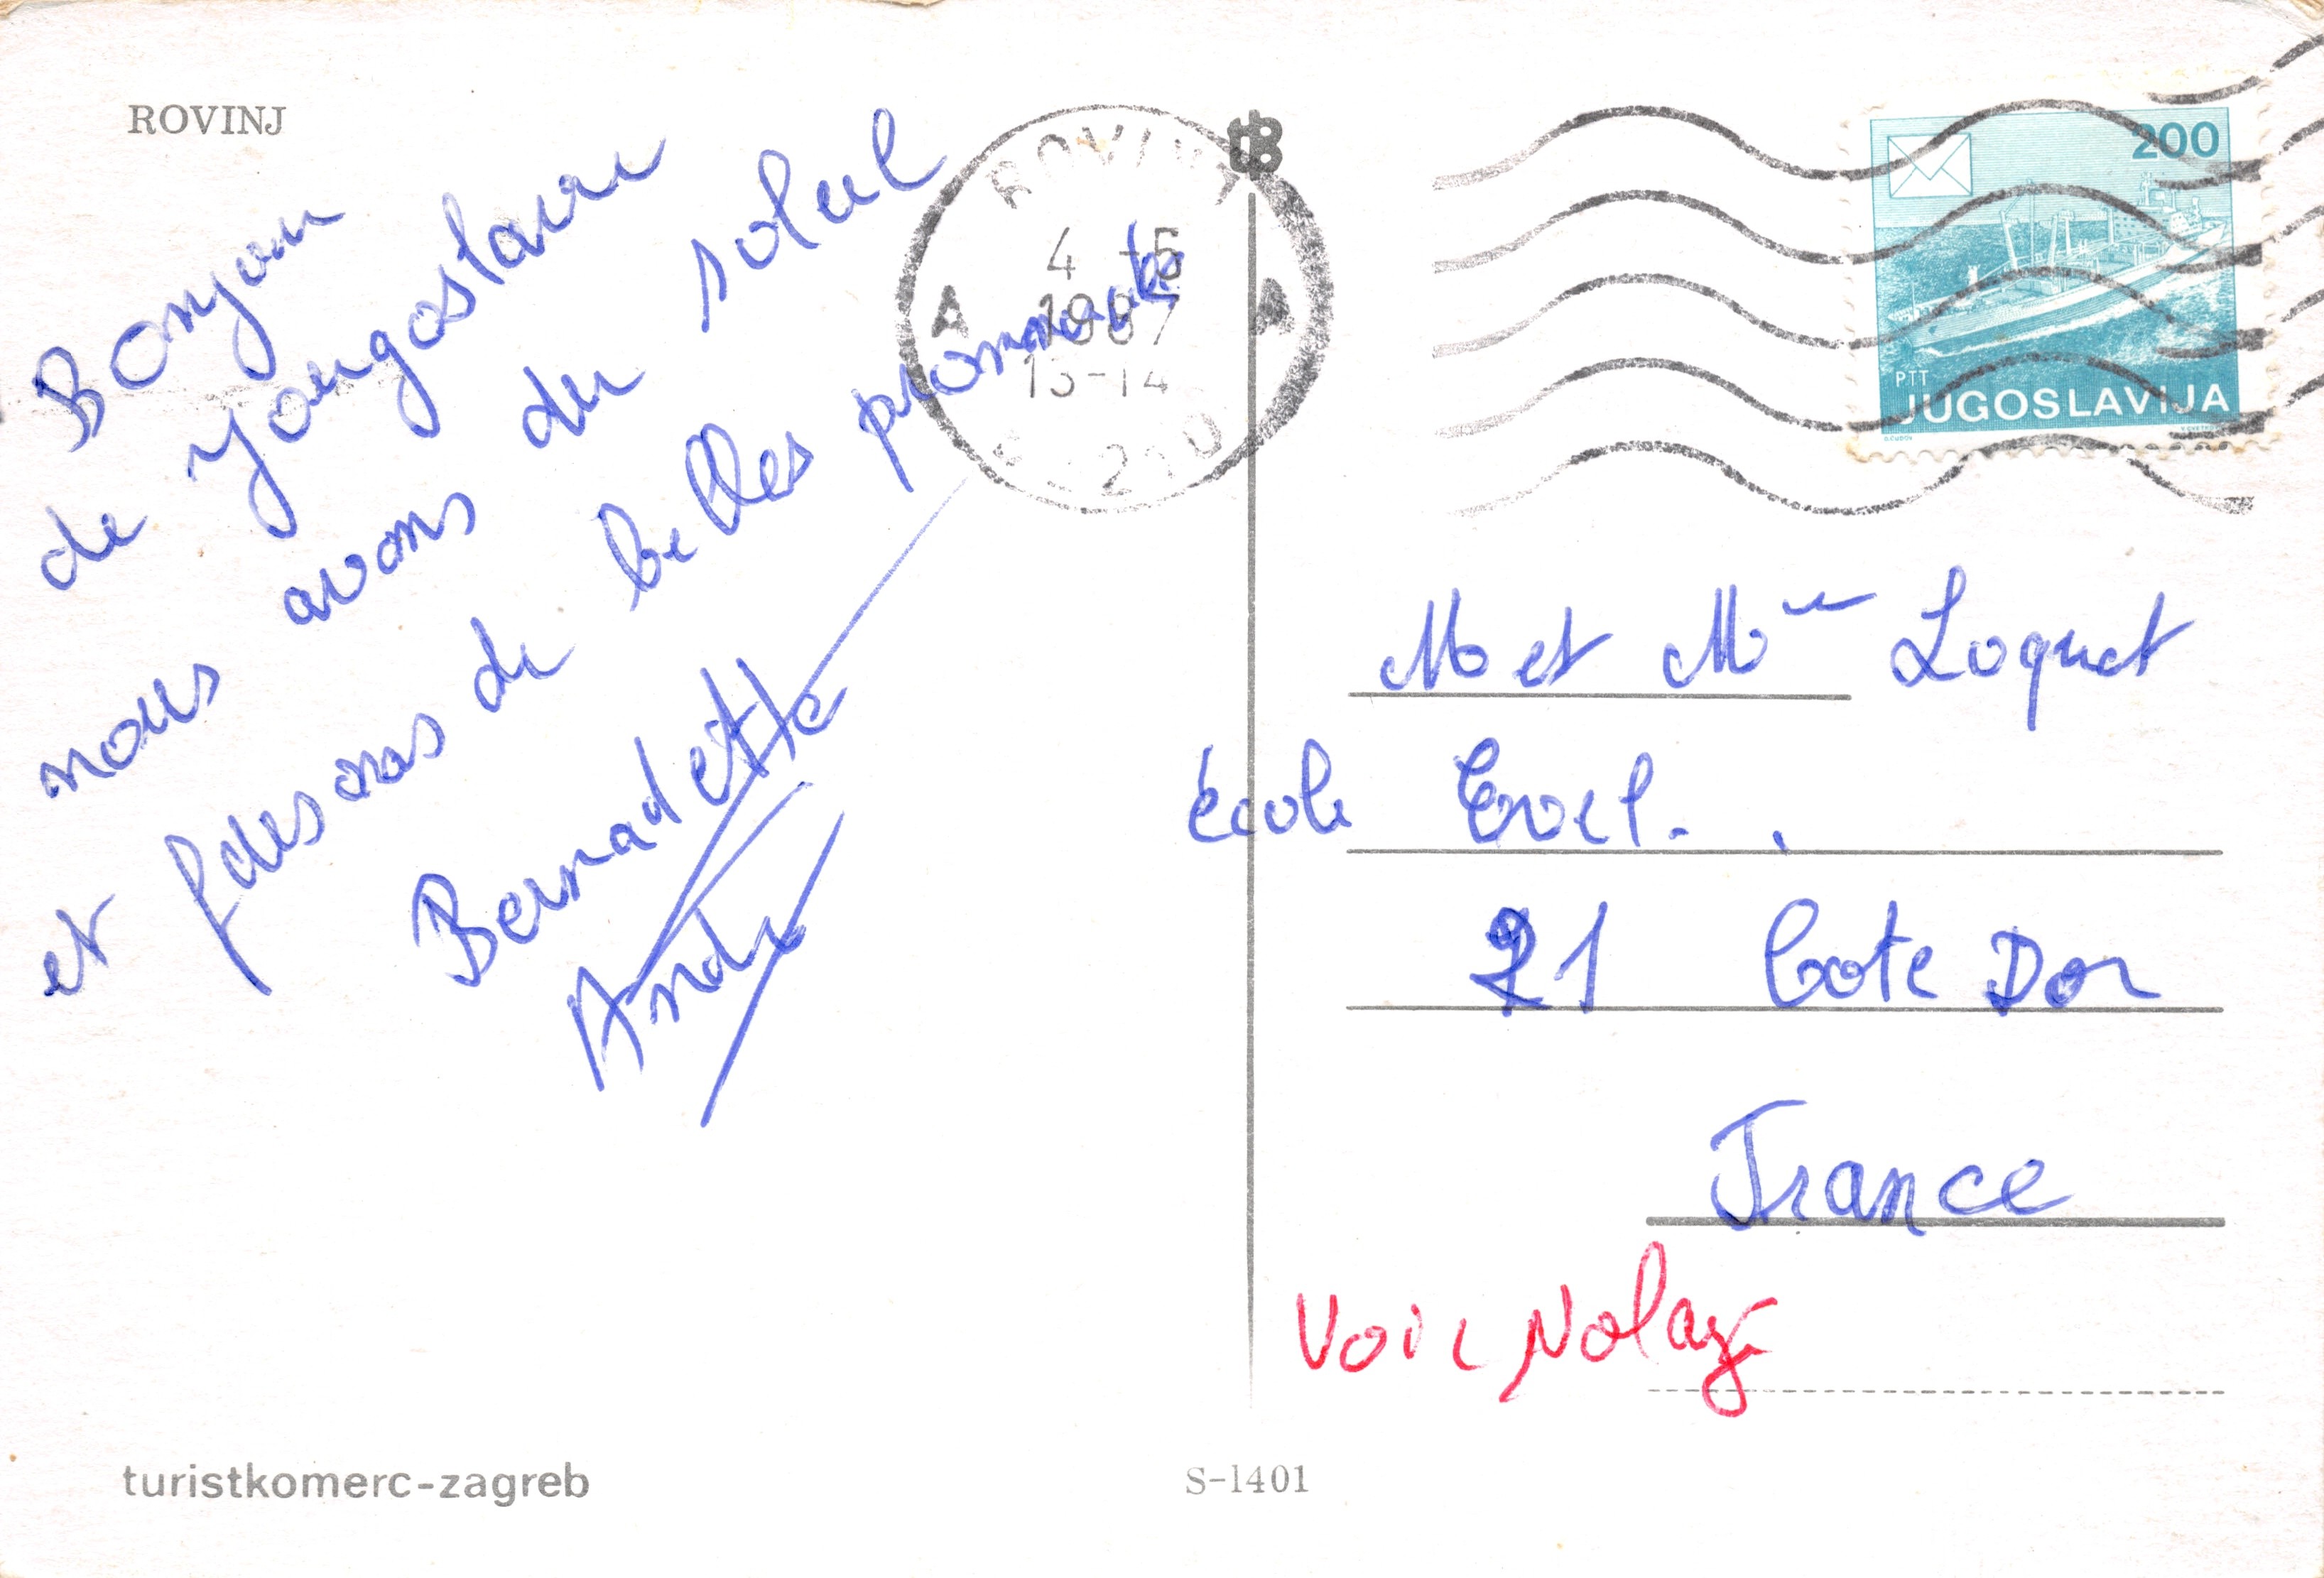 ROVINJ
Bonjour
de Yougoslavie
nous avons du soleil
et faisons de belles promenades
Bernadette
André
ROVINJ
4 -5
1987
13-14
A A
200
PTT
JUGOSLAVIJA
M et Mme Loquet
école
21 Cote Dor
France
Voir Nolay
turistkomerc-zagreb
S-1401